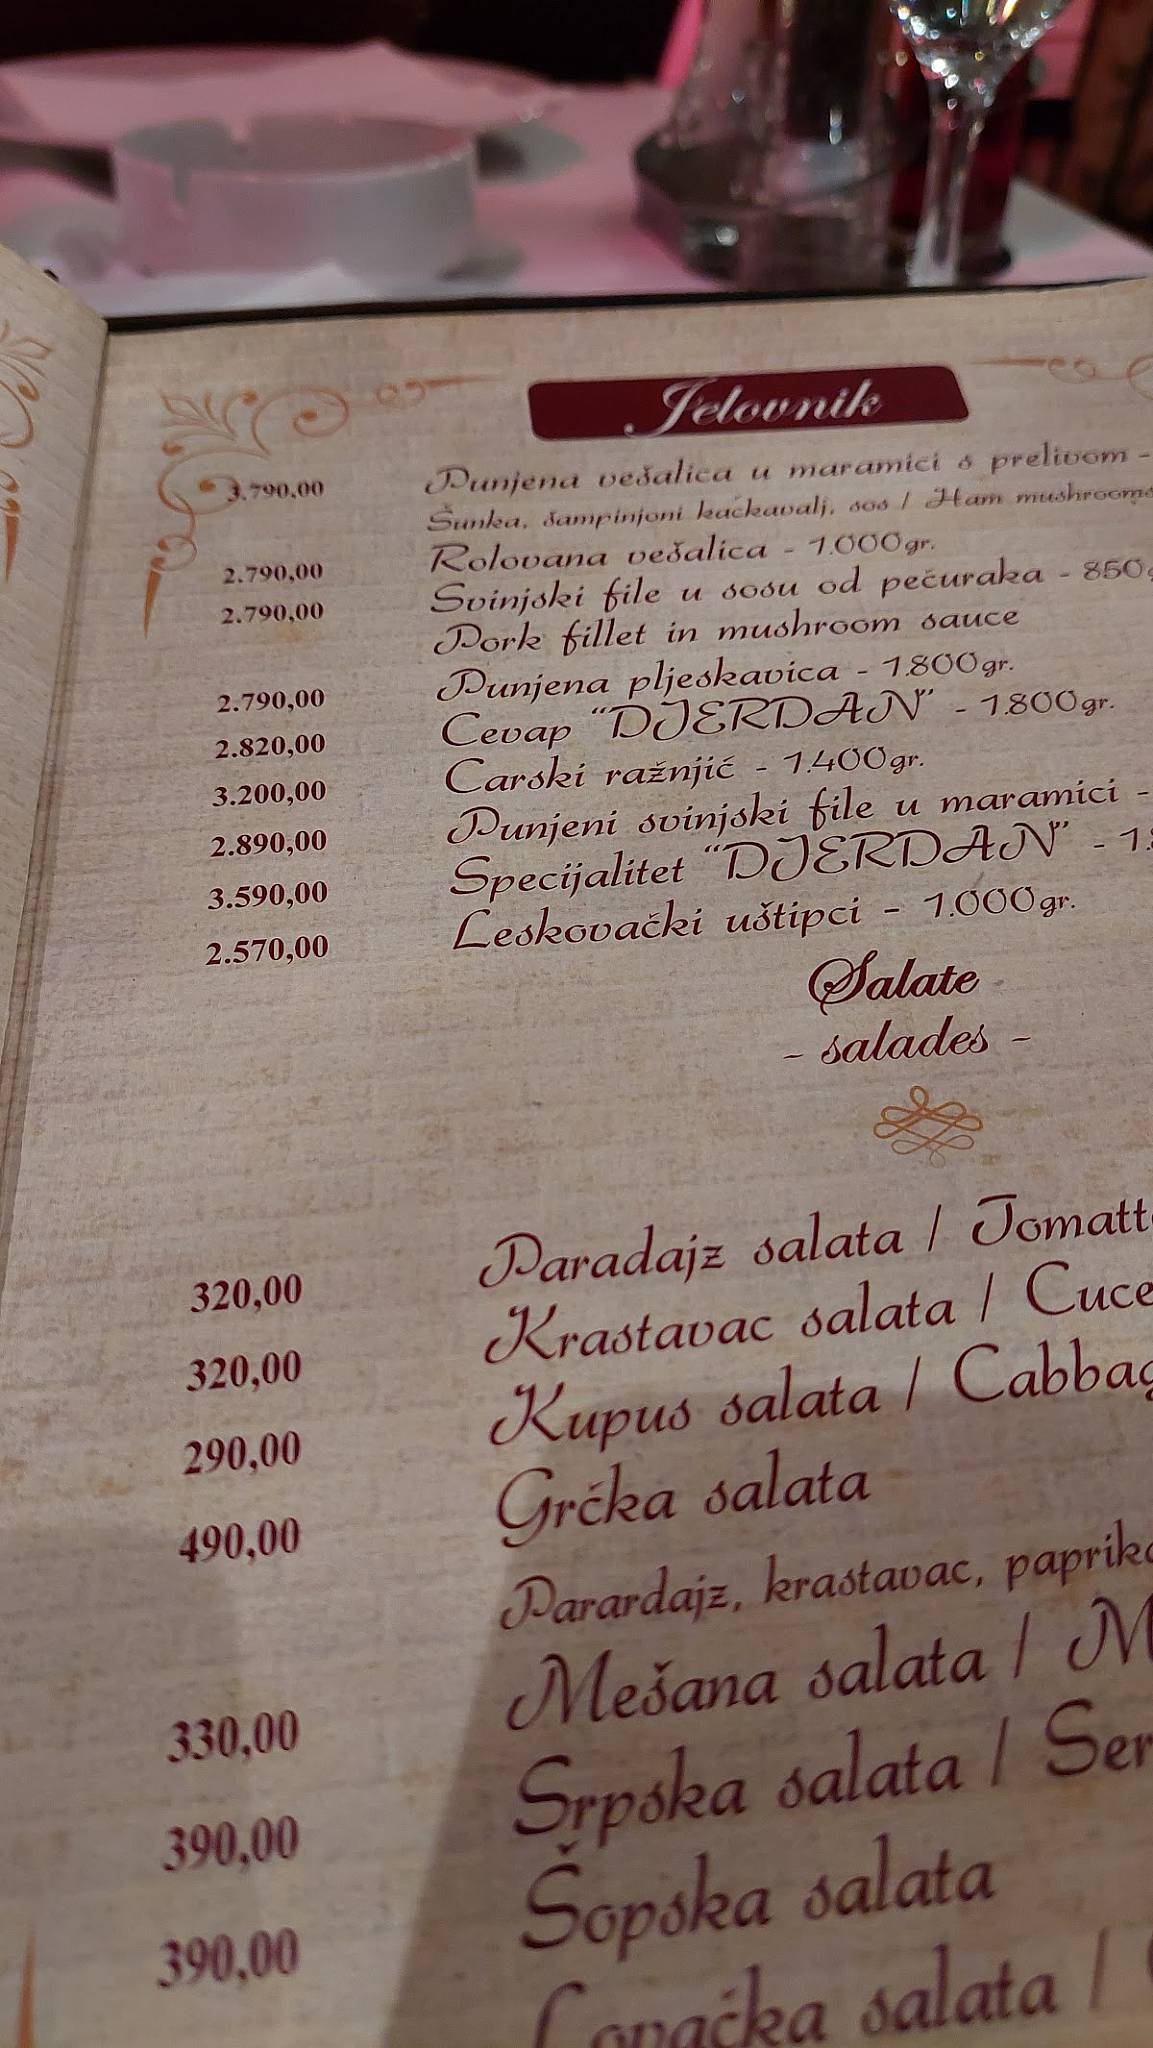 Jelovnik
3.790,00 Punjena vešalica u maramici s prelivom -
Šunka, šampinjoni kačkavalj, sos / Ham mushrooms
2.790,00 Rolovana vešalica - 1.000gr.
2.790,00 Svinjski file u sosu od pečuraka - 850
Pork fillet in mushroom sauce
2.790,00 Punjena pljeskavica - 1.800gr.
2.820,00 Cevap "DJERDAN" - 1.800gr.
3.200,00 Carski ražnjić - 1.400gr.
2.890,00 Punjeni svinjski file u maramici -
3.590,00 Specijalitet "DJERDAN" - 1.
2.570,00 Leskovački uštipci - 1.000gr.
Salate
- salades -
320,00 Paradajz salata / Tomatt
320,00 Krastavac salata / Cuce
290,00 Kupus salata / Cabbag
490,00 Grčka salata
Parardajz, krastavac, paprik
330,00 Mešana salata / M
390,00 Srpska salata / Ser
390,00 Šopska salata
Lovačka salata /